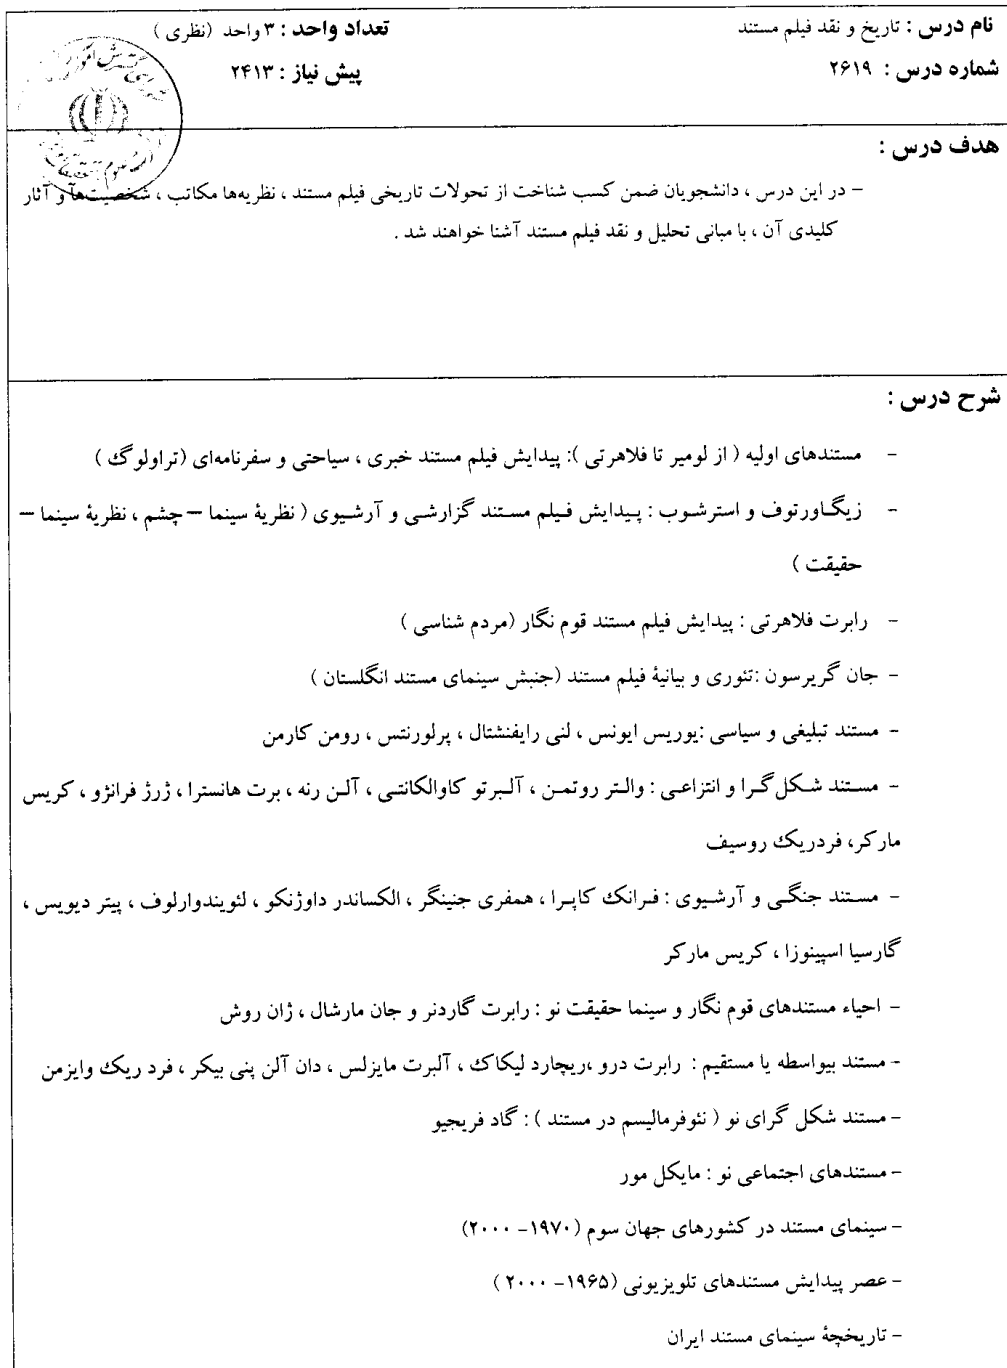 نام درس : تاریخ و نقد فیلم مستند
تعداد واحد : ۳ واحد (نظری )
شماره درس : ۲۶۱۹
پیش نیاز : ۲۴۱۳
هدف درس :
- در این درس ، دانشجویان ضمن کسب شناخت از تحولات تاریخی فیلم مستند ، نظریه‌ها مکاتب ، شخصیت‌ها و آثار
کلیدی آن ، با مبانی تحلیل و نقد فیلم مستند آشنا خواهند شد .
شرح درس :
- مستندهای اولیه ( از لومیر تا فلاهرتی ): پیدایش فیلم مستند خبری ، سیاحتی و سفرنامه‌ای (تراولوگ )
- زیگاورتوف و استرشوب : پیدایش فیلم مستند گزارشی و آرشیوی ( نظریۀ سینما – چشم ، نظریۀ سینما –
حقیقت )
- رابرت فلاهرتی : پیدایش فیلم مستند قوم نگار (مردم شناسی )
- جان گریرسون :تئوری و بیانیۀ فیلم مستند (جنبش سینمای مستند انگلستان )
- مستند تبلیغی و سیاسی :یوریس ایونس ، لنی رایفنشتال ، پرلورنتس ، رومن کارمن
- مستند شکل گرا و انتزاعی : والتر روتمن ، آلبرتو کاوالکانتی ، آلن رنه ، برت هانسترا ، ژرژ فرانژو ، کریس
مارکر، فردریک روسیف
- مستند جنگی و آرشیوی : فرانک کاپرا ، همفری جنینگر ، الکساندر داوژنکو ، لئویندوارلوف ، پیتر دیویس ،
گارسیا اسپینوزا ، کریس مارکر
- احیاء مستندهای قوم نگار و سینما حقیقت نو : رابرت گاردنر و جان مارشال ، ژان روش
- مستند بیواسطه یا مستقیم : رابرت درو ،ریچارد لیکاک ، آلبرت مایزلس ، دان آلن پنی بیکر ، فرد ریک وایزمن
- مستند شکل گرای نو ( نئوفرمالیسم در مستند ) : گاد فریجیو
- مستندهای اجتماعی نو : مایکل مور
- سینمای مستند در کشورهای جهان سوم (۱۹۷۰- ۲۰۰۰)
- عصر پیدایش مستندهای تلویزیونی (۱۹۶۵- ۲۰۰۰ )
- تاریخچۀ سینمای مستند ایران